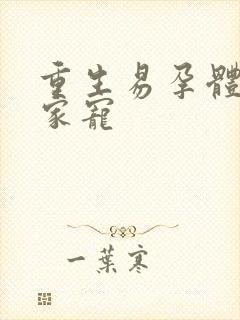 重生易孕體
家寵
一葉寒